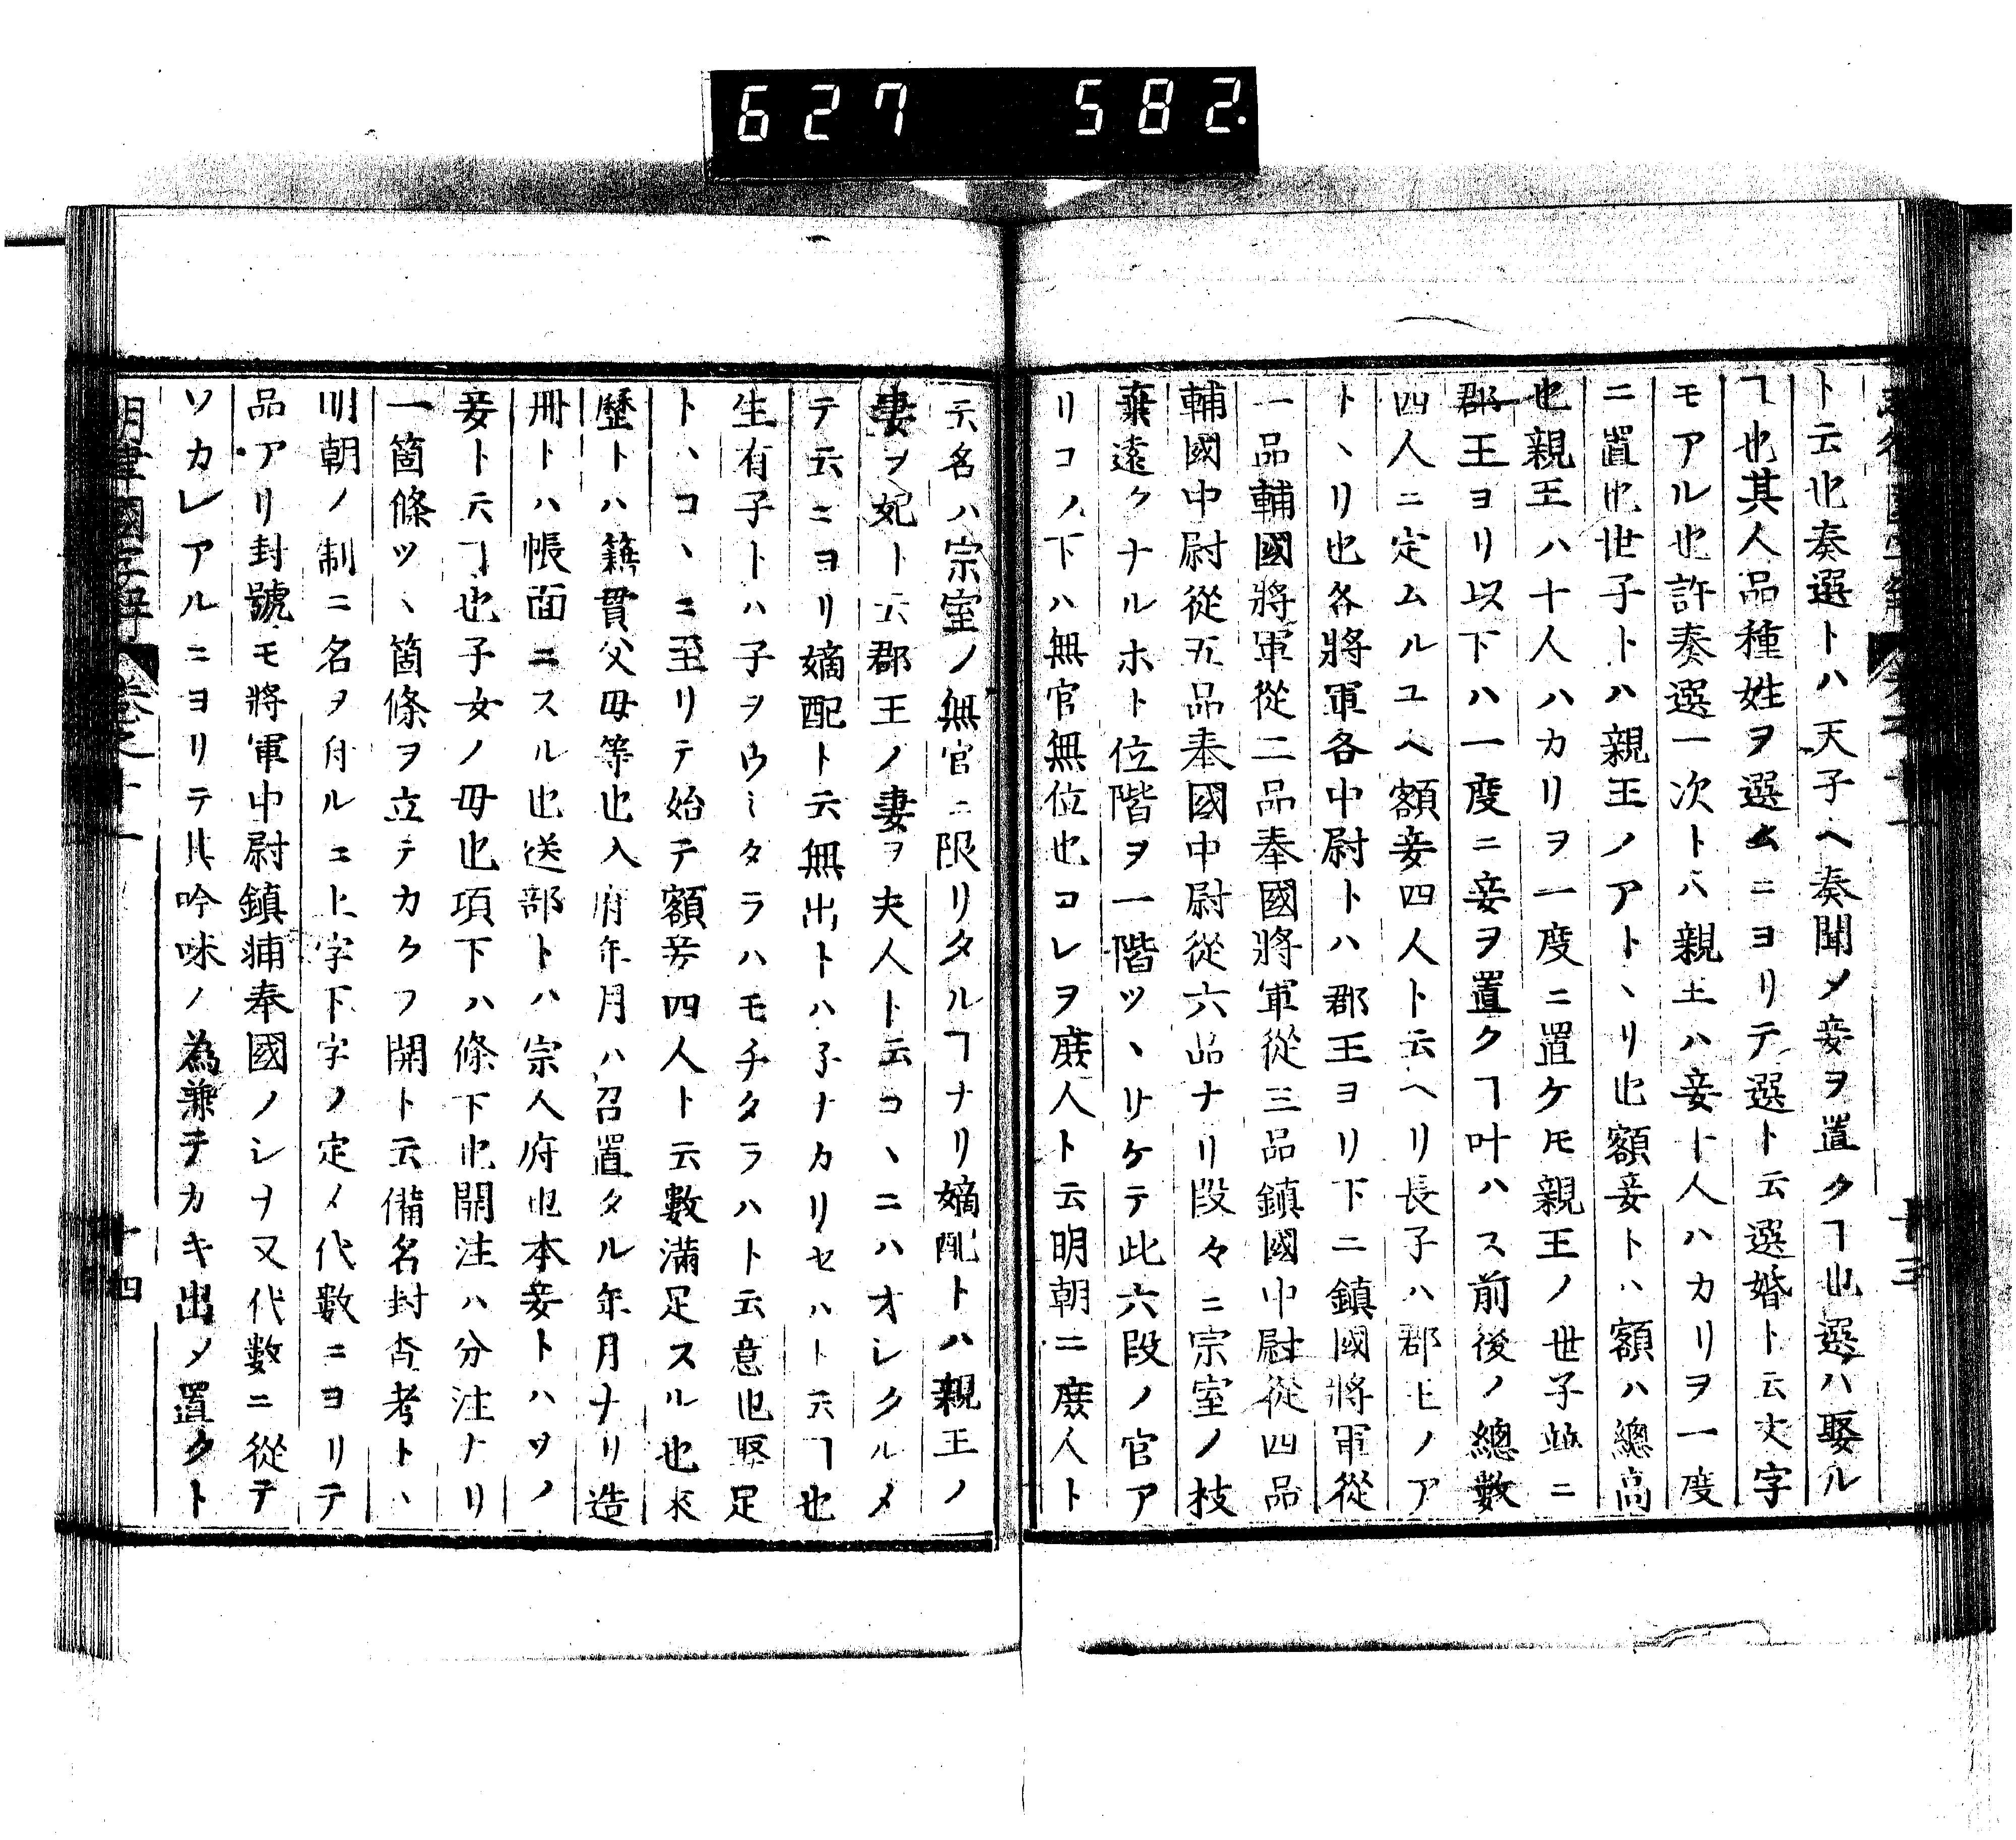 627 582.
ト云也奏選トハ天子ヘ奏聞〆妾ヲ置クヿ也選ハ娶ル
ヿ也其人品種姓ヲ選ムニヨリテ選ト云選婚ト云丈字
モアル也許奏選一次トハ親王ハ妾十人ハカリヲ一度
ニ置也世子トハ親王ノアトヽリ也額妾トハ額ハ總高
也親王ハ十人ハカリヲ一度ニ置ケ𪜈親王ノ世子並ニ
郡王ヨリ以下ハ一度ニ妾ヲ置クヿ叶ハス前後ノ總數
四人ニ定ムルユヘ額妾四人ト云ヘリ長子ハ郡王ノア
トヽリ也各將軍各中尉トハ郡王ヨリ下ニ鎮國將軍從
一品輔國將軍從二品奉國將軍從三品鎮國中尉從四品
輔國中尉從五品奉國中尉從六品ナリ段々ニ宗室ノ枝
葉遠クナルホト位階ヲ一階ツヽサケテ此六段ノ官ア
リコノ下ハ無官無位也コレヲ庻人ト云明朝ニ庻人ト
云名ハ宗室ノ無官ニ限リタルヿナリ嫡配トハ親王ノ
妻ヲ妃ト云郡王ノ妻ヲ夫人ト云コヽニハオシクルメ
テ云ニヨリ嫡配ト云無出トハ子ナカリセハト云ヿ也
生有子トハ子ヲウミタラハモチタラハト云意也娶足
トハコヽニ至リテ始テ額妾四人ト云數滿足スル也來
歷トハ籍貫父母等也入府年月ハ召置タル年月ナリ造
冊トハ帳面ニスル也送部トハ宗人府也本妾トハソノ
妾ト云ヿ也子女ノ母也項下ハ條下也開注ハ分注ナリ
一箇條ツヽ箇條ヲ立テカクヲ開ト云備名封査考トハ
明朝ノ制ニ名ヲ付ルニ上字下字ノ定〆代數ニヨリテ
品アリ封號モ將軍中尉鎮輔奉國ノシヲ又代數ニ從テ
ソカレアルニヨリテ其吟味ノ為兼テカキ出〆置クト
明律國字解 卷之十一 十四